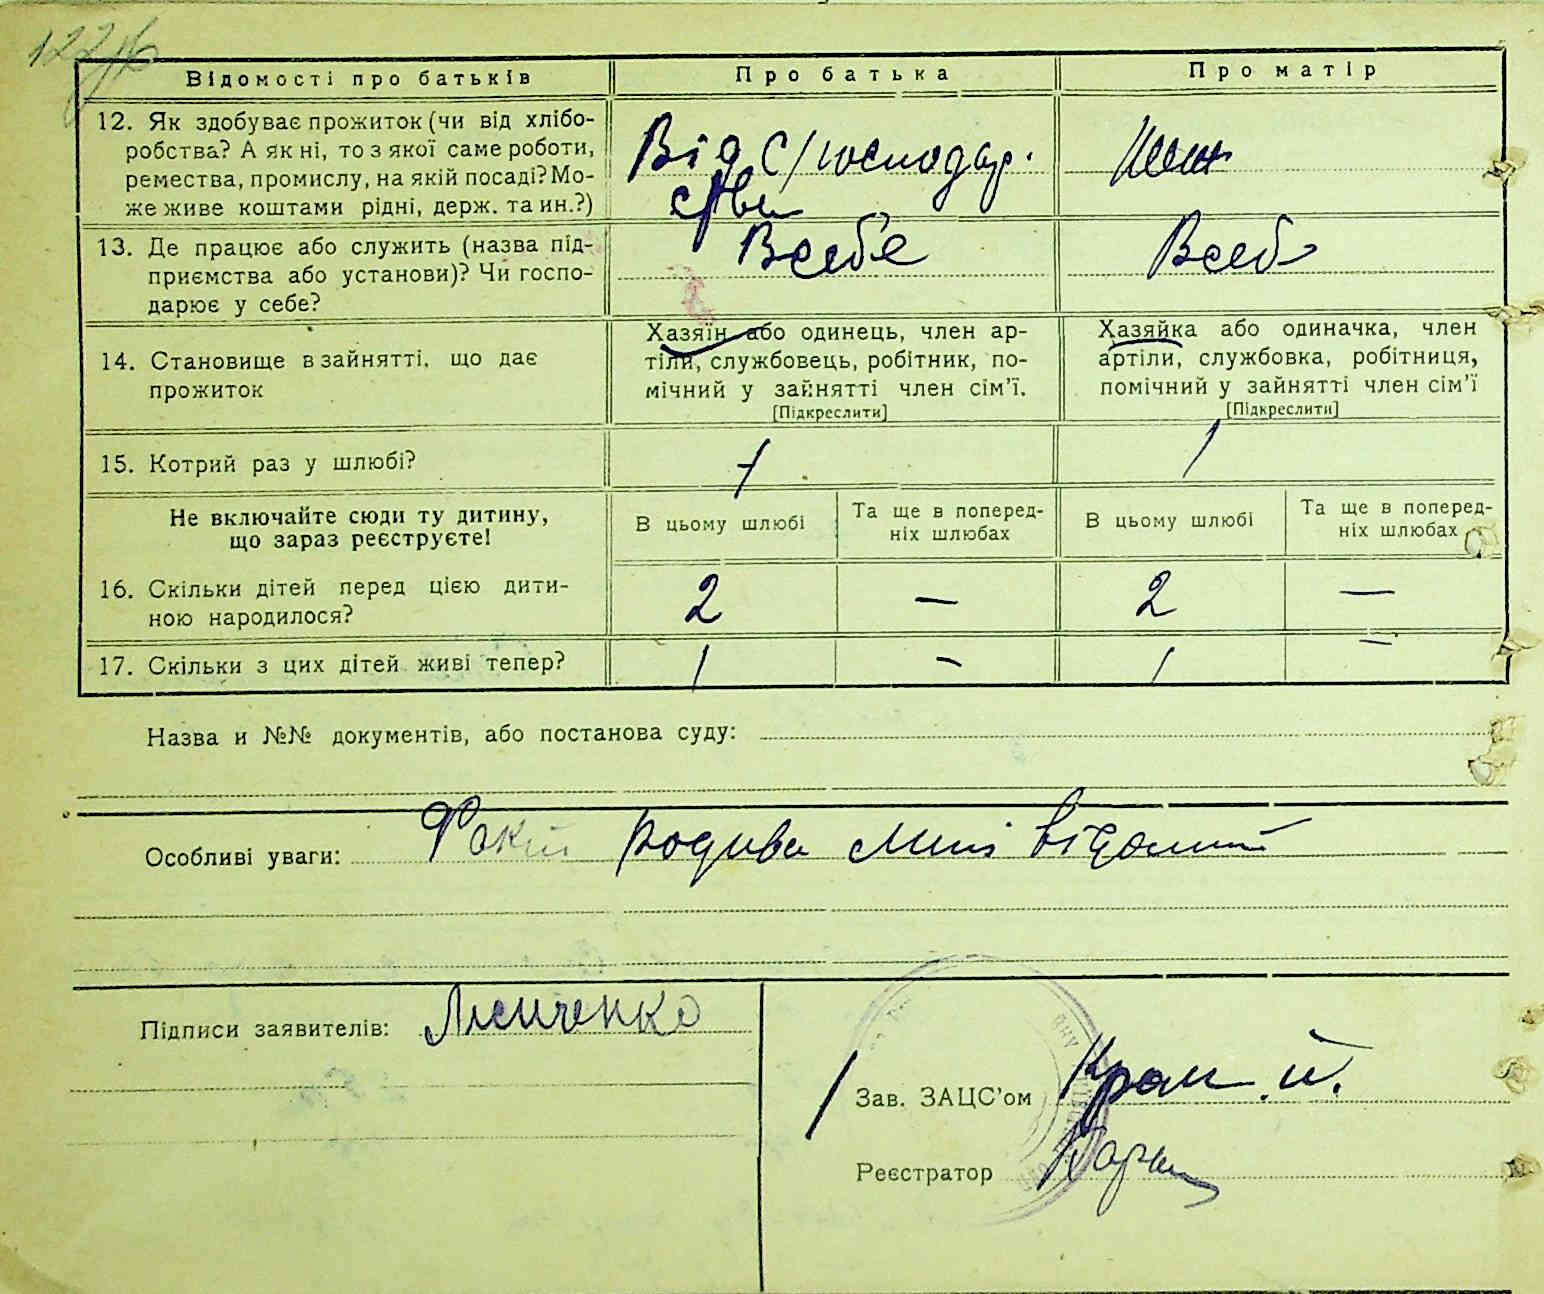 Відомості про батьків
Про батька
Про матір
12. Як здобуває прожиток (чи від хлібо-
робства? А як ні, то з якої саме роботи,
ремества, промислу, на якій посаді? Мо-
же живе коштами рідні, держ. та ин.?)
Від с/господар.
ства
13. Де працює або служить (назва під-
приємства або установи)? Чи госпо-
дарює у себе?
Всебе
Всеб
14. Становище в зайнятті, що дає
прожиток
Хазяїн або одинець, член ар-
тіли, службовець, робітник, по-
мічний у зайнятті член сім'ї.
[Підкреслити]
Хазяйка або одиначка, член
артіли, службовка, робітниця,
помічний у зайнятті член сім'ї
[Підкреслити]
15. Котрий раз у шлюбі?
1
1
Не включайте сюди ту дитину,
що зараз реєструєте!
В цьому шлюбі
Та ще в поперед-
ніх шлюбах
В цьому шлюбі
Та ще в поперед-
ніх шлюбах
16. Скільки дітей перед цією дити-
ною народилося?
2
—
2
—
17. Скільки з цих дітей живі тепер?
1
-
1
—
Назва и №№ документів, або постанова суду:
Особливі уваги: Факт родива мині відомий
Підписи заявителів: Лисиченко
Зав. ЗАЦС'ом
Реєстратор